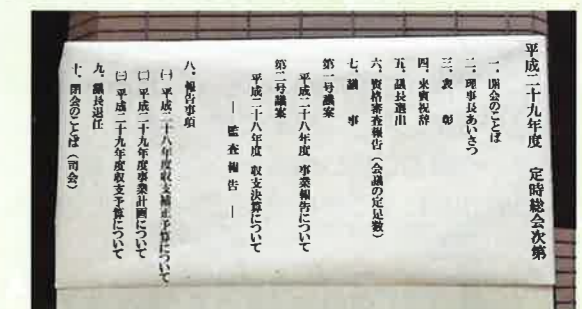 平成二十九年度　定時総会次第
一、開会のことば
二、理事長あいさつ
三、表　彰
四、来賓祝辞
五、議長選出
六、資格審査報告（会議の定足数）
七、議　事
第一号議案
平成二十八年度 事業報告について
第二号議案
平成二十八年度 収支決算について
― 監 査 報 告 ―
八、報告事項
㈠ 平成二十八年度収支補正予算について
㈡ 平成二十九年度事業計画について
㈢ 平成二十九年度収支予算について
九、議長退任
十、閉会のことば（司会）